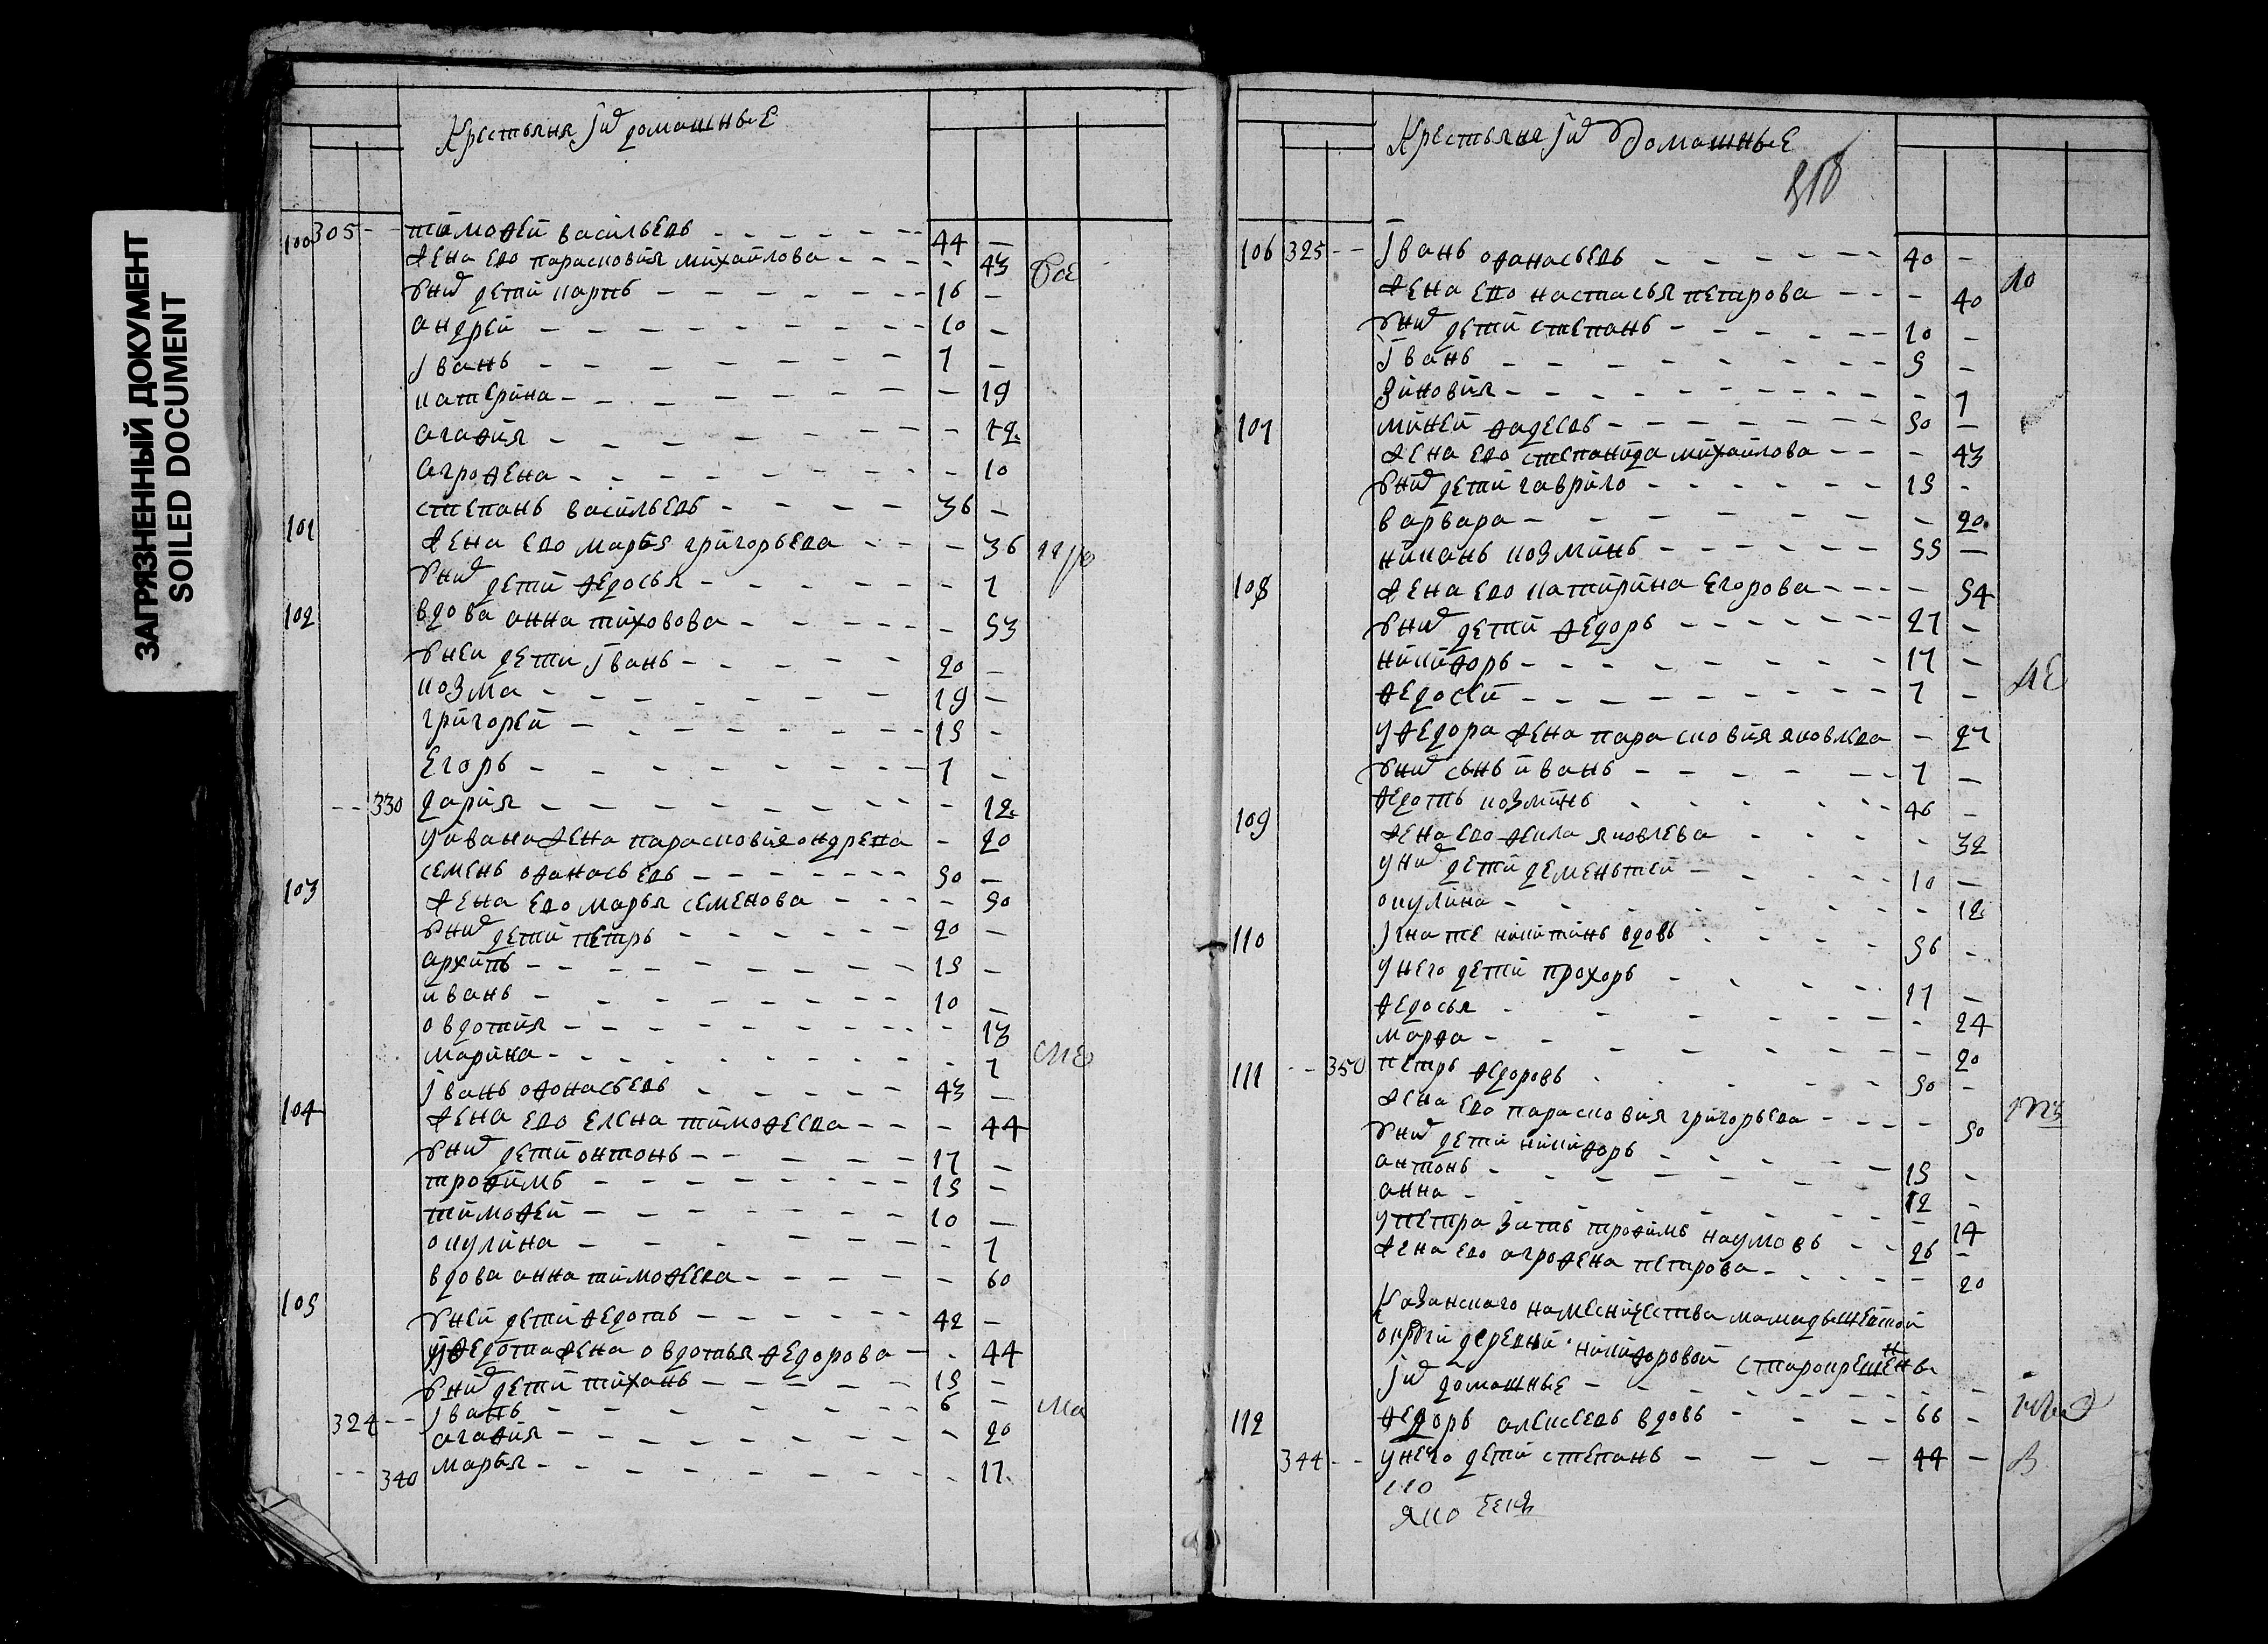 ЗАГРЯЗНЕННЫЙ ДОКУМЕНТ
SOILED DOCUMENT
Крестьяня и их домашные
100 305 -- тимофей васильевъ 44 —
жена ево парасковия михайлова - 43
у них дети карпъ 16 —
андрей 10 —
Iванъ 7 —
катерина - 19
агафия - 12
агрофена - 10
101 степанъ васильевъ 36 —
жена ево марья григорьева - 36
у них дети федосья - 7
102 вдова анна тиховова - 53
у ней дети Iванъ 20 —
козма 19 —
григорей 15 -
Егоръ 7 -
-- 330 дария - 12
у ивана жена парасковия ондрева - 20
103 семенъ офанасьевъ 50 —
жена ево марья семенова - 50
у них дети петръ 20 —
архипъ 15 -
иванъ 10 —
овдотия - 13
марина - 7
104 Iванъ офонасьевъ 43 —
жена ево елена тимофеева - 44
у них дети онтонъ 17 —
трофимъ 15 —
тимофей 10 —
окулина - 7
105 вдова анна тимофеева - 60
у ней дети федотъ 42 —
у федота жена овдотья федорова - 44
у них дети тиханъ 15 —
324 -- Iванъ 6 —
агафия - 20
-- 340 марья - 17
Крестьяня и их домашные
318
106 325 -- Iванъ офанасьевъ 40 —
жена ево настасья петрова - 40
у них дети степанъ 10 —
Iванъ 5 —
зиновия - 7
107 миней фадеевъ 50 —
жена ево степанида михайлова - 43
у них дети гаврило 15 -
варвара - 20
108 никанъ козминъ 55 —
жена ево катирина Егорова - 54
у них дети федоръ 27 —
никифоръ 17 —
федосей 7 —
у федора жена парасковия яковлева - 27
у них сынъ иванъ 7 —
109 федотъ козминъ 46 -
жена ево фекла яковлева - 32
у них дети деменьтей 10 —
окулина - 12
110 Iгнатей никитинъ вдовъ 56 -
у него дети прохоръ 17 —
федосья - 24
марфа - 20
111 -- 350 петръ федоровъ 50 -
жена ево парасковия григорьева - 50
у них дети никифоръ 15 -
антонъ 12 -
анна - 14
у петра зать трофимъ наумовъ 26 —
жена ево агрофена петрова - 20
Казанского намесничества мамадышешской
округи деревни никифоровой старокрещены
и их домашные
112 федоръ алексеевъ вдовъ 66 -
344 -- у него дети степанъ 44 —